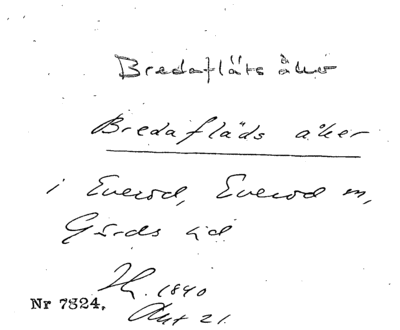 Bredafläts åker
Bredafläds åker
i Everöd, Everöd sn,
Gärds hd
1840
Akt 21.
Nr 7824.